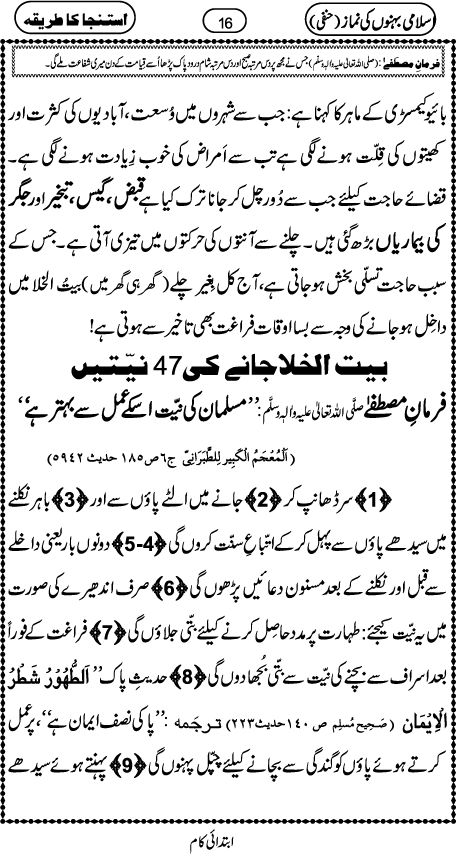 اسلامی بہنوں کی نماز (حنفی) 16 استنجا کا طریقہ
فرمانِ مصطفےٰ: (صلی اللہ تعالیٰ علیہ والہٖ وسلّم) جس نے مجھ پر دس مرتبہ صبح اور دس مرتبہ شام درود پاک پڑھا اُسے قیامت کے دن میری شفاعت ملے گی۔
بائیو کیمسٹری کے ماہر کا کہنا ہے: جب سے شہروں میں وُسعت، آبادیوں کی کثرت اور
کھیتوں کی قِلّت ہونے لگی ہے تب سے اَمراض کی خوب زِیادت ہونے لگی ہے۔
قضائے حاجت کیلئے جب سے دُور چل کر جانا ترک کیا ہے قبض، گیس، تبخیر اور جگر
کی بیماریاں بڑھ گئی ہیں۔ چلنے سے آنتوں کی حرکتوں میں تیزی آتی ہے۔ جس کے
سبب حاجت تسلّی بخش ہو جاتی ہے، آج کل بِغیر چلے (گھر ہی گھر میں) بیتُ الخلا میں
داخِل ہو جانے کی وجہ سے بسا اوقات فراغت بھی تاخیر سے ہوتی ہے!
بیت الخلا جانے کی 47 نیّتیں
فرمانِ مصطفےٰ صلَّی اللہ تعالیٰ علیہ والہٖ وسلَّم: ’’مسلمان کی نیّت اسکے عمل سے بہتر ہے‘‘
(اَلْمُعْجَمُ الْکبِیر لِلطَّبَرَانِیّ ج ۶ ص ۱۸۵ حدیث ۵۹۴۲)
﴿1﴾ سر ڈھانپ کر ﴿2﴾ جانے میں الٹے پاؤں سے اور ﴿3﴾ باہر نکلنے
میں سیدھے پاؤں سے پہل کر کے اتّباعِ سنّت کروں گی ﴿4-5﴾ دونوں بار یعنی داخلے
سے قبل اور نکلنے کے بعد مسنون دعائیں پڑھوں گی ﴿6﴾ صرف اندھیرے کی صورت
میں یہ نیّت کیجئے: طہارت پر مدد حاصِل کرنے کیلئے بتّی جلاؤں گی ﴿7﴾ فراغت کے فوراً
بعد اسراف سے بچنے کی نیّت سے بتّی بُجھا دوں گی ﴿8﴾ حدیثِ پاک ’’اَلطُّھُوْرُ شَطْرُ
الْاِیْمَان (صَحِیح مُسلِم ص ۱۴۰ حدیث ۲۲۳) ترجَمہ: ’’پاکی نصف ایمان ہے‘‘، پر عمل
کرتے ہوئے پاؤں کو گندگی سے بچانے کیلئے چپّل پہنوں گی ﴿9﴾ پہنتے ہوئے سیدھے
ابتدائی کام